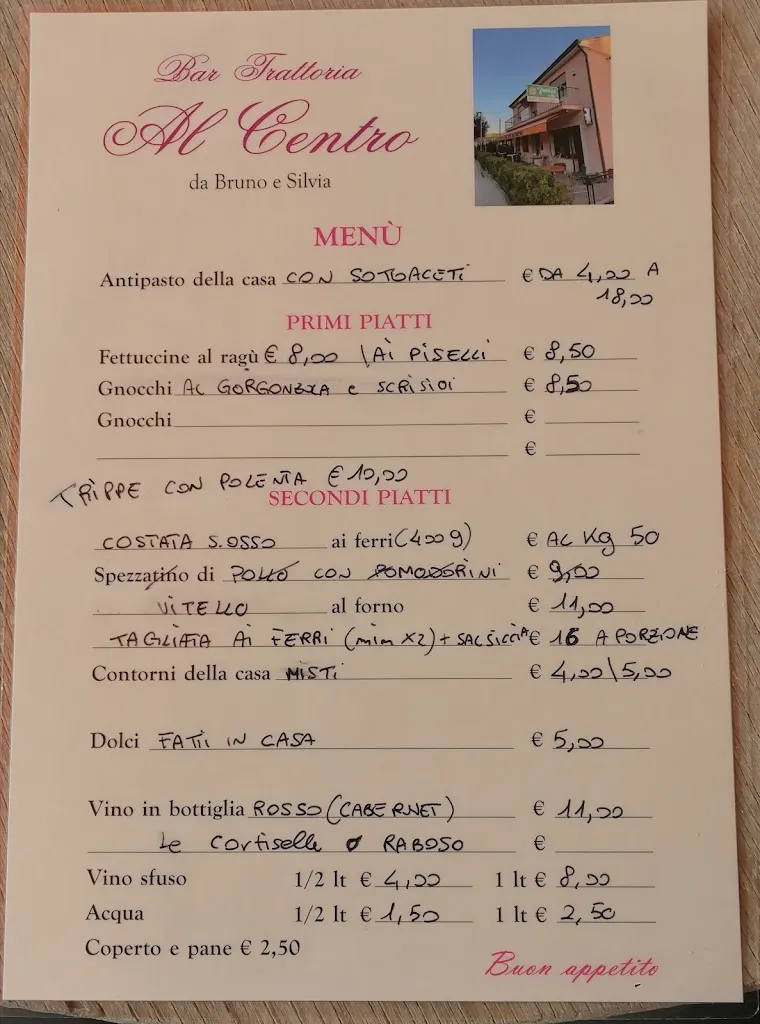 Bar Trattoria
Al Centro
da Bruno e Silvia
MENÙ
Antipasto della casa CON SOTTOACETI € DA 4,00 A
18,00
PRIMI PIATTI
Fettuccine al ragù € 8,00 \ AI PISELLI € 8,50
Gnocchi AL GORGONZOLA e SCRISIOI € 8,50
Gnocchi €
€
TRIPPE CON POLENTA € 10,00
SECONDI PIATTI
COSTATA S.OSSO ai ferri (400g) € AL Kg 50
Spezzatino di POLLO CON POMODORINI € 9,00
VITELLO al forno € 11,00
TAGLIATA AI FERRI (min X2) + SALSICCIA € 16 A PORZIONE
Contorni della casa MISTI € 4,00\5,00
Dolci FATTI IN CASA € 5,00
Vino in bottiglia ROSSO (CABERNET) € 11,00
Le Cortiselle O RABOSO €
Vino sfuso 1/2 lt € 4,00 1 lt € 8,00
Acqua 1/2 lt € 1,50 1 lt € 2,50
Coperto e pane € 2,50
Buon appetito